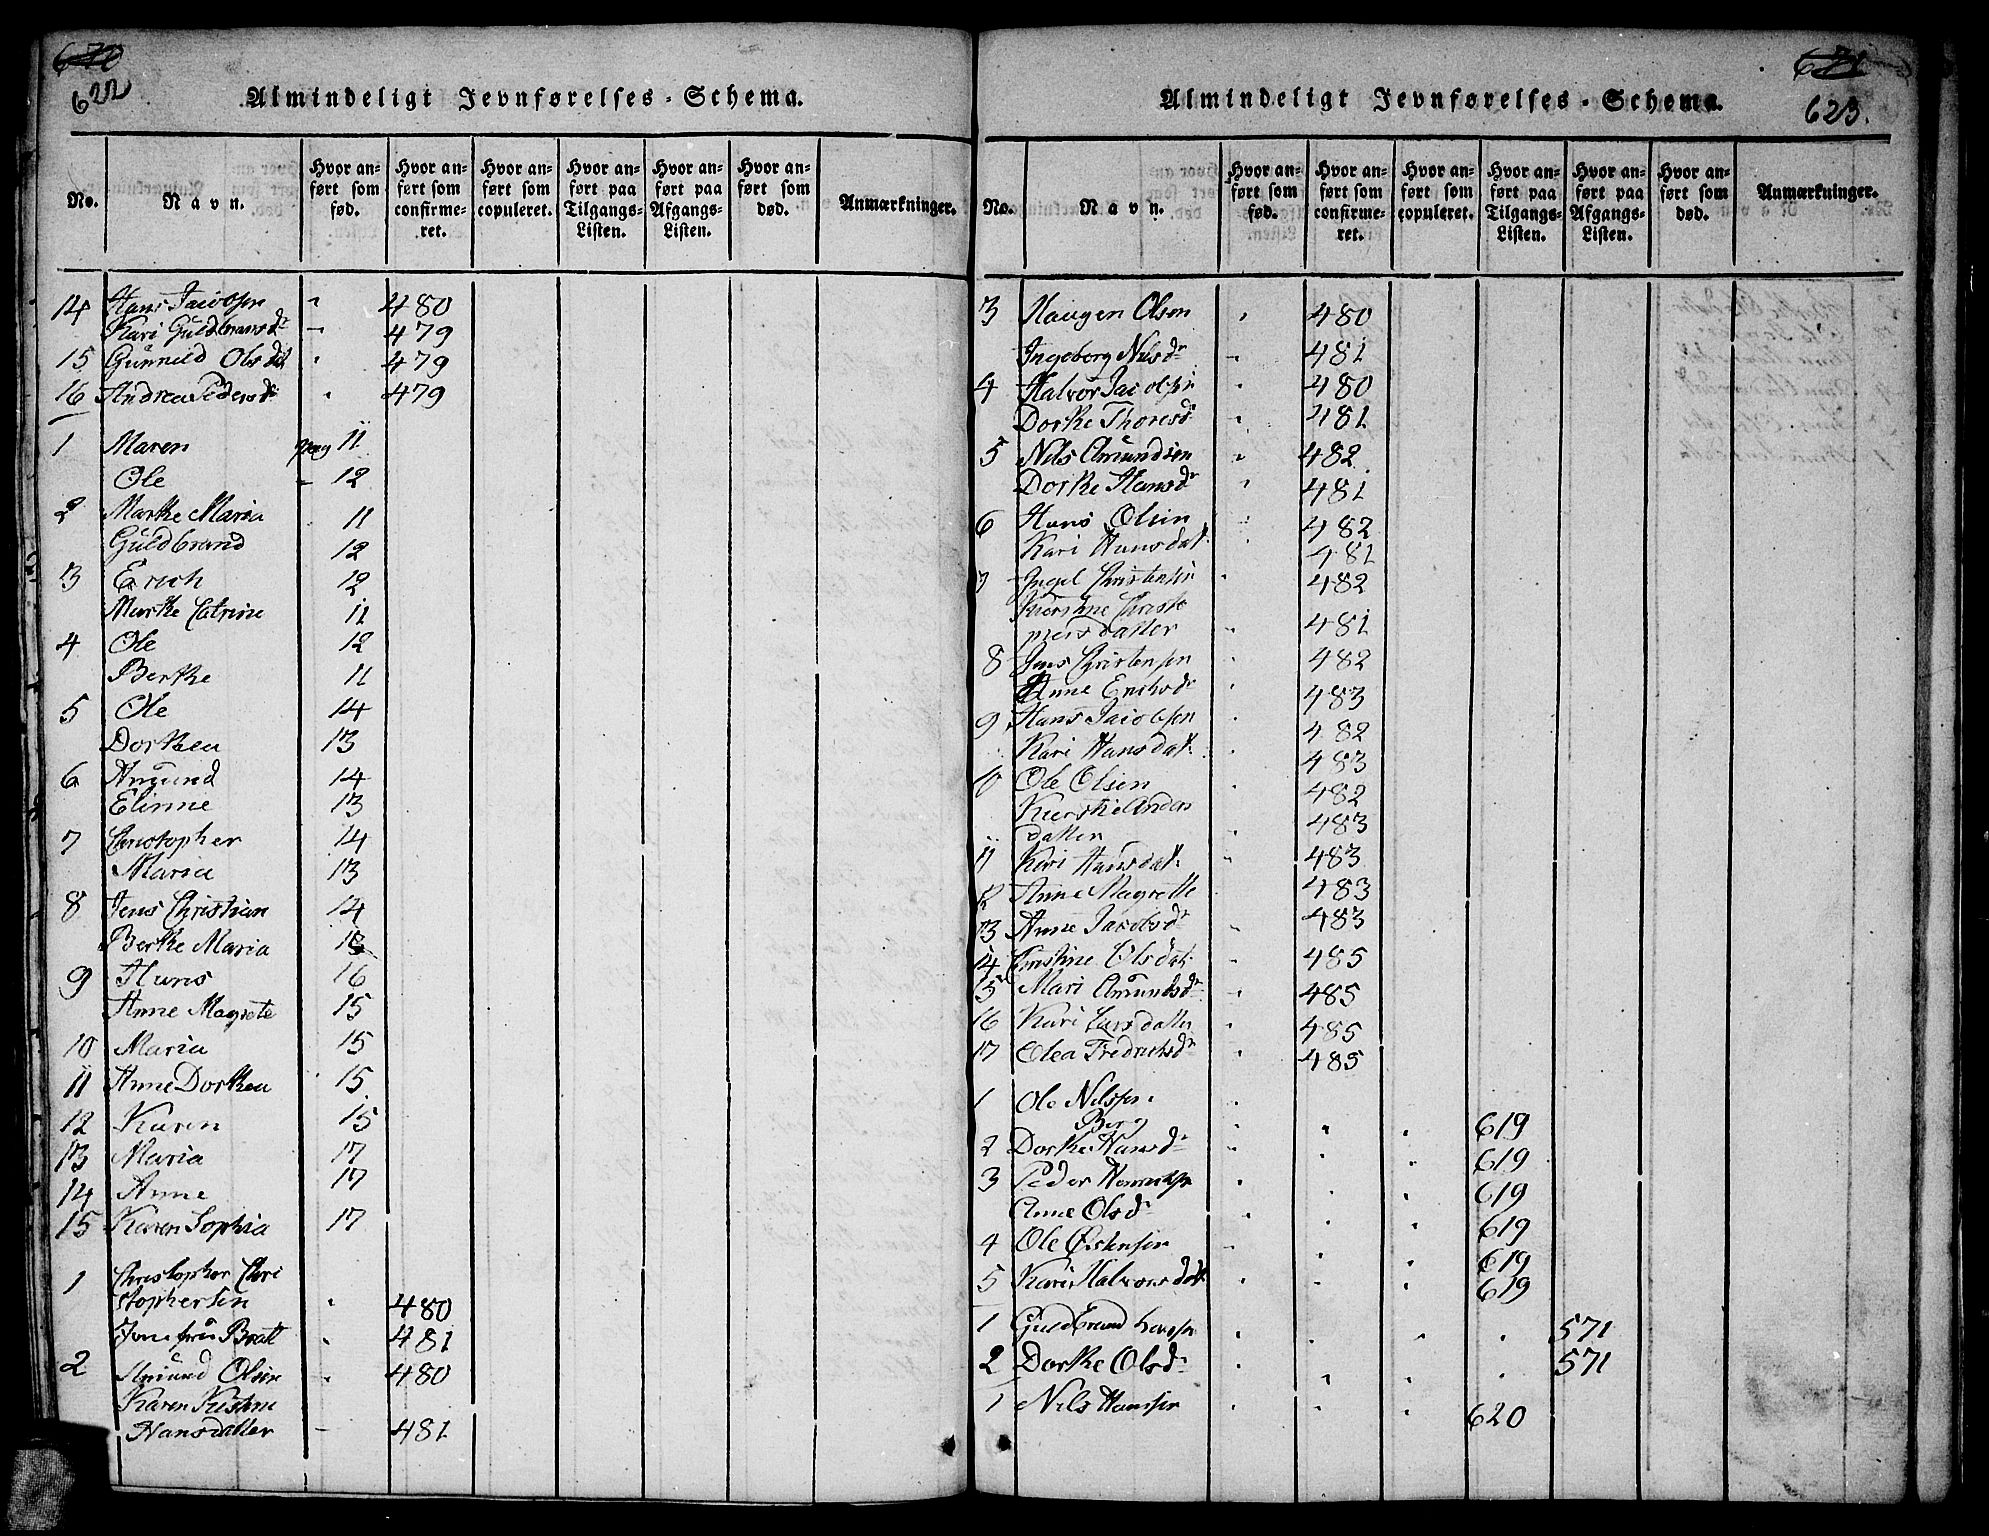 670
622
Almindeligt Jevnførelses-Schema.
No.
Navn.
Hvor anført som fød.
Hvor anført som confirmeret.
Hvor anført som copuleret.
Hvor anført paa Tilgangs-Listen.
Hvor anført paa Afgangs-Listen.
Hvor anført som død.
Anmærkninger.
14 Hans Jacobsen " 480
Kari Guldbransdr - 479
15 Gunnild Olsdat " 479
16 Andrea Pedersdr " 479
1 Maren pag 11
Ole - 12
2 Marthe Maria 11
Guldbrand 12
3 Erich 12
Marthe Catrine 11
4 Ole 12
Berthe 11
5 Ole 14
Dorthea 13
6 Amund 14
Elinne 13
7 Christopher 14
Maria 13
8 Jens Christian 14
Berthe Maria 13
9 Hans 16
Anne Magrete 15
10 Maria 15
11 Anne Dorthea 15
12 Karen 15
13 Maria 17
14 Anne 17
15 Karen Sophia 17
1 Christopher Chri
stophersen " 480
Jomfru Bratt " 481
2 Amund Olsen " 480
Karen Kistine
Hansdatter - 481
671
623.
Almindeligt Jevnførelses-Schema.
No.
Navn.
Hvor anført som fød.
Hvor anført som confirmeret.
Hvor anført som copuleret.
Hvor anført paa Tilgangs-Listen.
Hvor anført paa Afgangs-Listen.
Hvor anført som død.
Anmærkninger.
3 Haugen Olsen " 480
Ingeborg Nilsdr - 481
4 Halvor Jacobsen " 480
Dorthe Thoresdr " 481
5 Nils Amundsen " 482
Dorthe Hansdr " 481
6 Hans Olsen " 482
Kari Hansdat. " 481
7 Ingel Christensen " 482
Kierstine Christo
phersdatter " 481
8 Jens Christensen " 482
Anne Erichsdr " 483
9 Hans Jacobsen " 482
Kari Hansdat. " 483
10 Ole Olsen " 482
Kierstie Anders
datter " 483
11 Kari Hansdat. " 483
12 Anne Magrette 483
13 Anne Jacobsdr " 483
14 Christine Olsdat. " 485
15 Mari Amundsdr " 485
16 Kari Larsdatter " 485
17 Olea Fredrichsdr " 485
1 Ole Nilssen "
Berg " " " 619
2 Dorthe Hansdr " " " 619
3 Peder Henrichsen " " " 619
Anne Olsdr " " " 619
4 Ole Østensen " " " 619
5 Kari Halvorsdat. " " " 619
1 Guldbrand Larssen " " " 571
2 Dorthe Olsdr " " " " 571
1 Nils Hanssen " " " 620